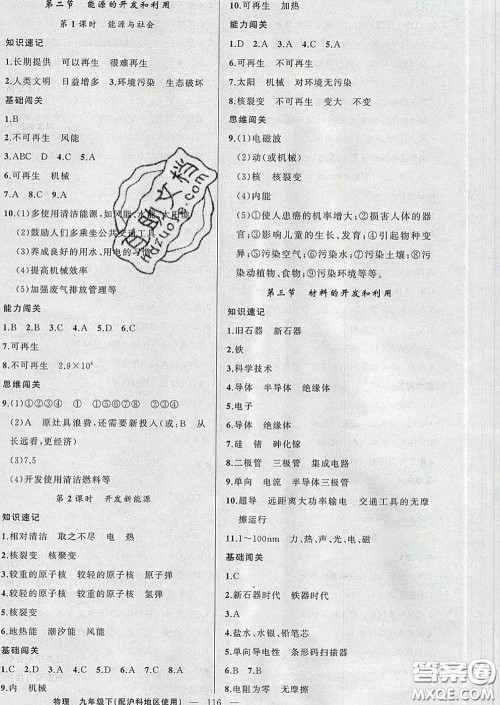 第二节 能源的开发和利用
第1课时 能源与社会
知识速记
1.长期提供 可以再生 很难再生
2.人类文明 日益增多 3.环境污染 生态破坏
基础闯关
1.B
2.不可再生 风能
3.ABC D 4.C 5.A
6.可再生 机械
7.A 8.A 9.A
10.(1)多使用清洁能源,如风能、水能、太阳能
(2)鼓励人们多乘坐公共交通工具
(3)养成良好的用水、用电的习惯
(4)提高机械效率
(5)加强废气排放管理等
能力闯关
1.B 2.B 3.A 4.D 5.D 6.C
7.可再生
8.不可再生
思维闯关
9.(1)①②③④ ① ①②③④ ②③④
(2)A 原灶具浪费,还需要新投入(或B 从
长远看,更经济)
(3)7.5
(4)开发使用清洁燃料等
第2课时 开发新能源
知识速记
1.相对清洁 取之不尽 电 热
2.核裂变 核聚变
3.较重的原子核 较轻的原子核 原子弹
4.较重的原子核 较轻的原子核 氢弹
5.核裂变
6.地热能 潮汐能 风能
基础闯关
1.C 2.C 3.D 4.D 5.C 6.A 7.D 8.D
9.内 机械
10.可再生 其他
能力闯关
1.D 2.A 3.C 4.B 5.A
6.可再生 不可再生
7.太阳 机械 对环境无污染
8.核裂变 不可再生 变大 不变
思维闯关
9.(1)电磁波
(2)动(或机械)
(3)核 核裂变
(4)内能
(5)①使人患癌的机率增大;②损害人体的器
官;③影响儿童的生长、发育;④影响视力;
⑤污染空气;⑥污染水;⑦污染土壤;⑧污
染动植物、食物;⑨污染环境等等。
第三节 材料的开发和利用
知识速记
1.旧石器 新石器
2.铁
3.科学技术
4.导体 半导体 绝缘体
5.电子
6.导体 半导体 绝缘体
7.硅 锗 砷化镓
8.二极管 三极管 集成电路
9.单向 电流 半导体三极管
10.超导 远距离大功率输电 交通工具的无摩
擦运行
11.1~100nm 力、热、声、光、电、磁
基础闯关
1.C
2.新石器时代 铁器时代
3.A
4.盐水、水银、铅笔芯
5.单向导电性 热、光、声
6.B 7.B
8.电阻为零 减小摩擦
物理 九年级下(配沪科地区使用) — 116 —
自助文档
zizuoke.com
答案圈
MXQE.COM